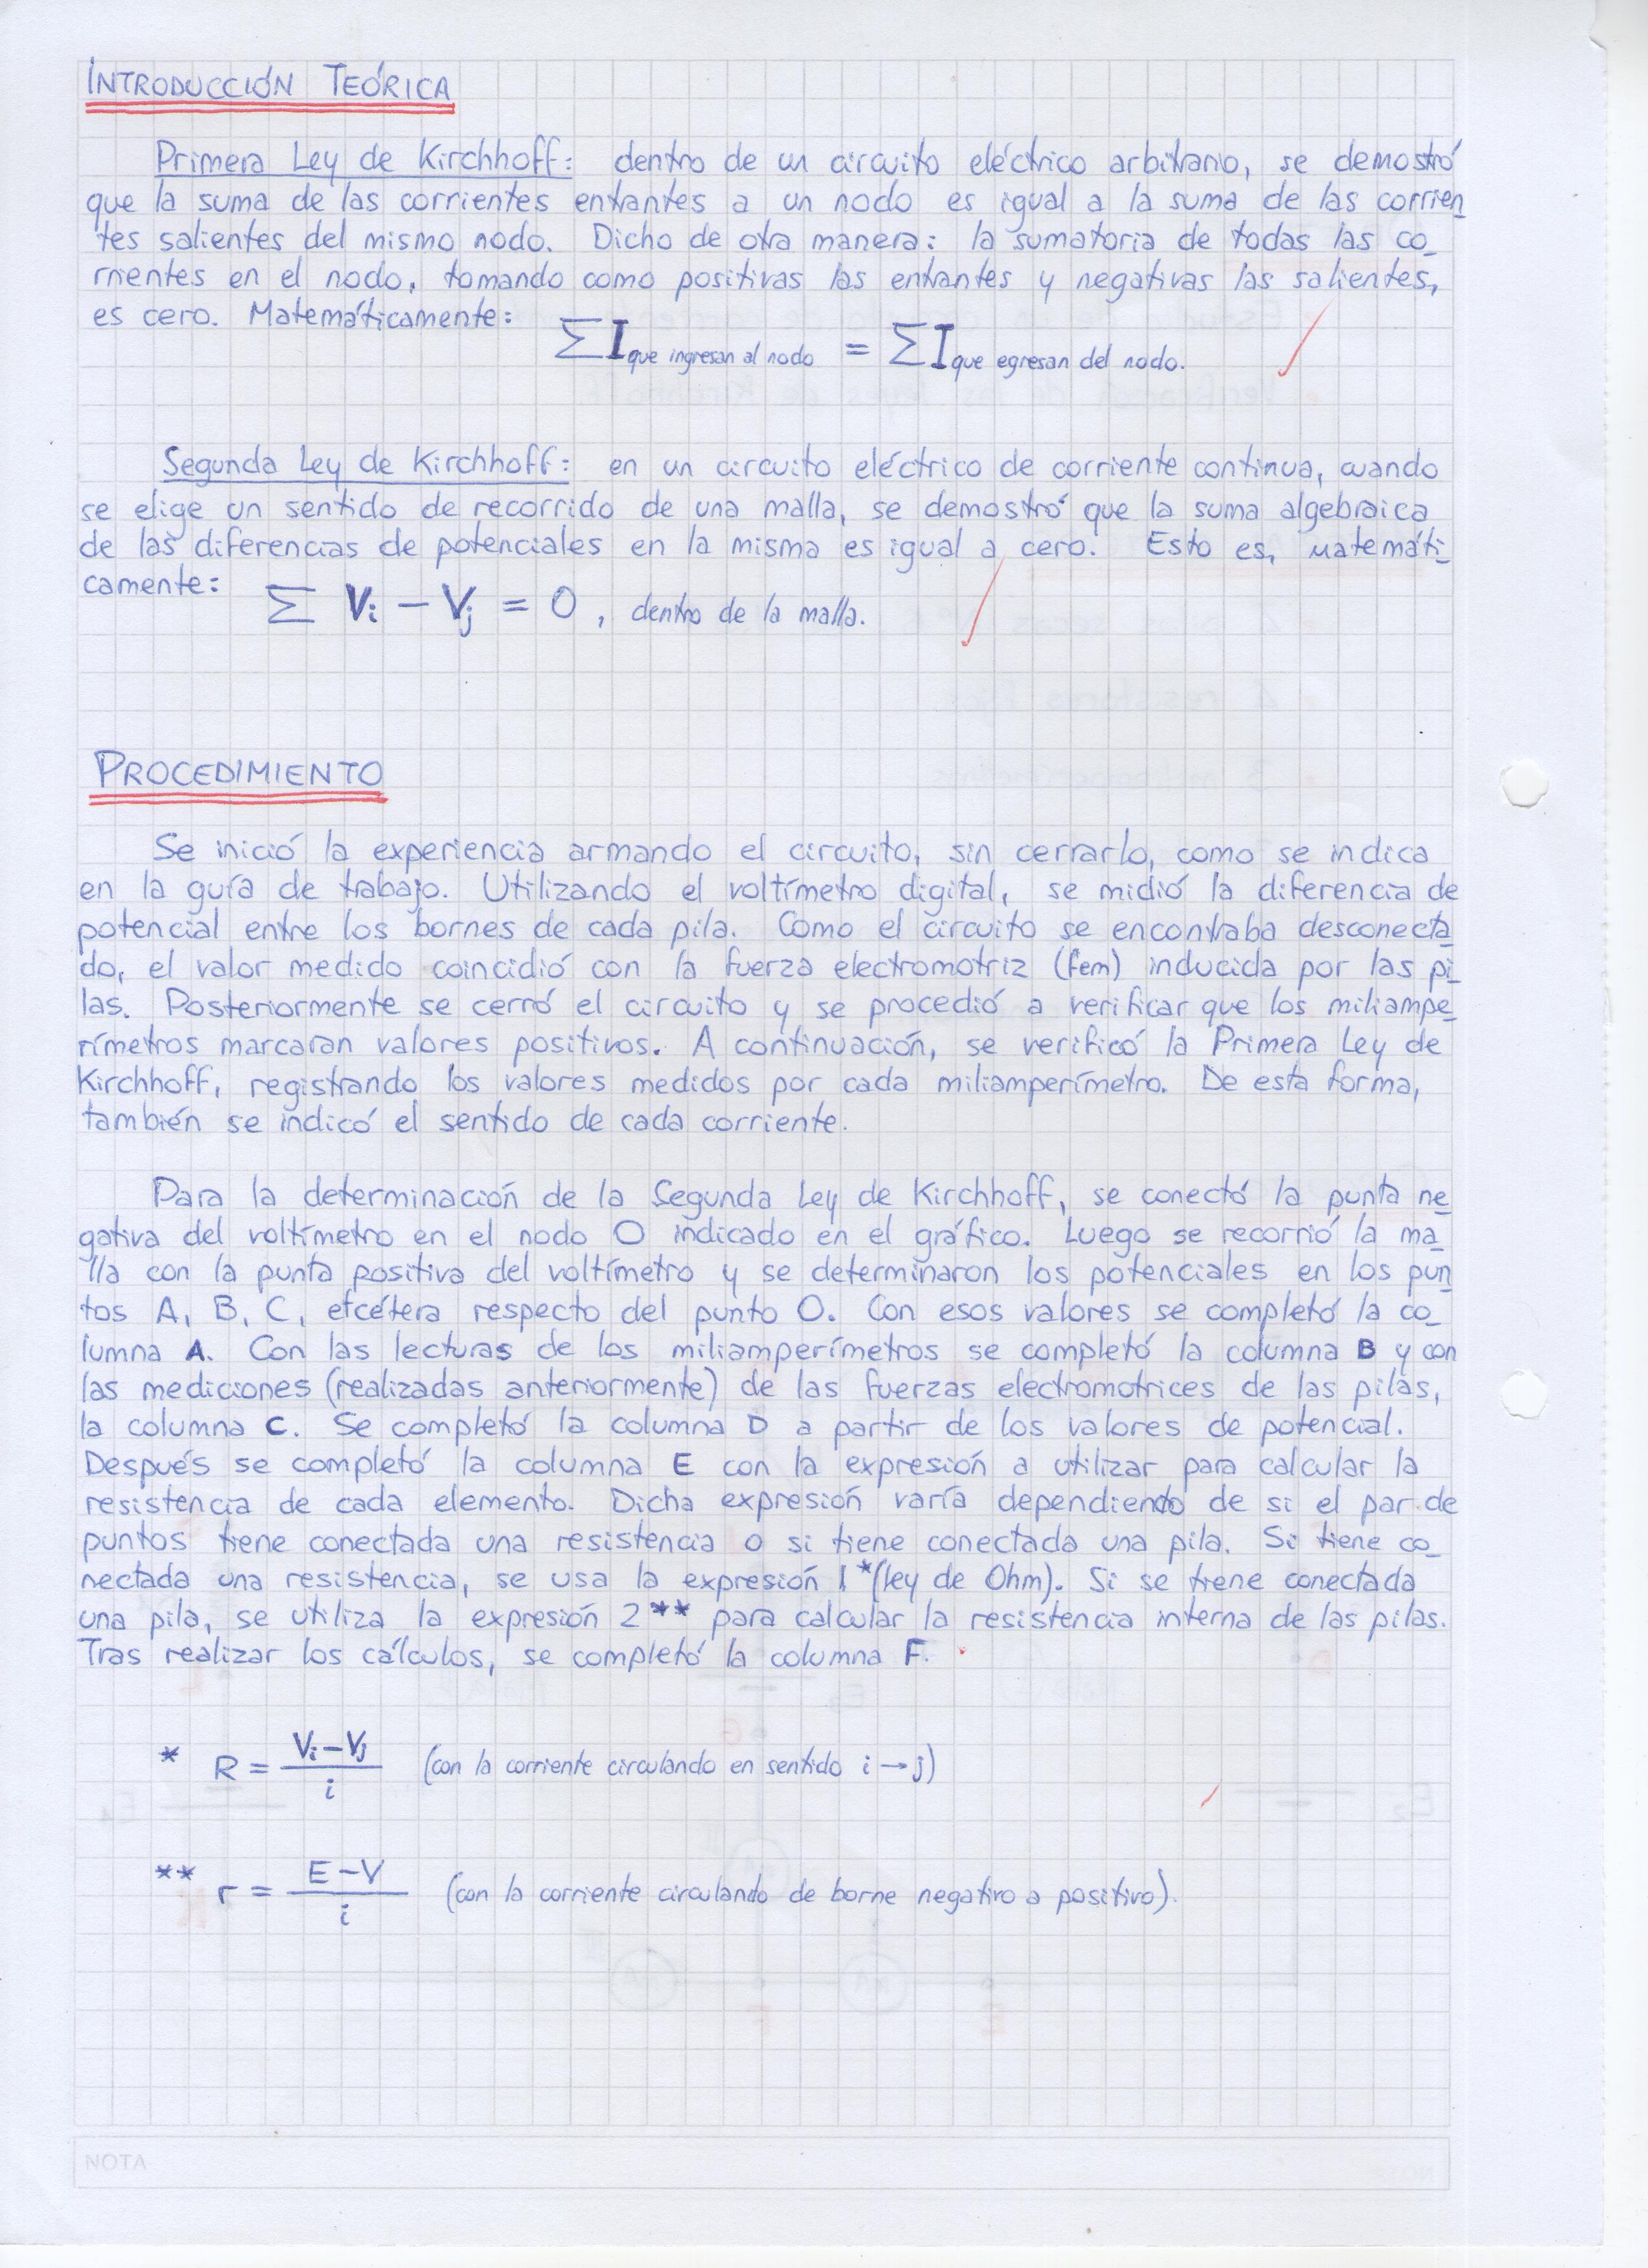 INTRODUCCIÓN TEÓRICA
Primera Ley de Kirchhoff: dentro de un circuito eléctrico arbitrario, se demostró
que la suma de las corrientes entrantes a un nodo es igual a la suma de las corrien_
tes salientes del mismo nodo. Dicho de otra manera: la sumatoria de todas las co_
rrientes en el nodo, tomando como positivas las entrantes y negativas las salientes,
es cero. Matemáticamente:
∑I que ingresan al nodo = ∑I que egresan del nodo.
Segunda Ley de Kirchhoff: en un circuito eléctrico de corriente continua, cuando
se elige un sentido de recorrido de una malla, se demostró que la suma algebraica
de las diferencias de potenciales en la misma es igual a cero. Esto es, matemáti_
camente: ∑ Vi – Vj = 0, dentro de la malla.
PROCEDIMIENTO
Se inició la experiencia armando el circuito, sin cerrarlo, como se indica
en la guía de trabajo. Utilizando el voltímetro digital, se midió la diferencia de
potencial entre los bornes de cada pila. Como el circuito se encontraba desconecta_
do, el valor medido coincidió con la fuerza electromotriz (fem) inducida por las pi_
las. Posteriormente se cerró el circuito y se procedió a verificar que los miliampe_
rímetros marcaran valores positivos. A continuación, se verificó la Primera Ley de
Kirchhoff, registrando los valores medidos por cada miliamperímetro. De esta forma,
también se indicó el sentido de cada corriente.
Para la determinación de la Segunda Ley de Kirchhoff, se conectó la punta ne_
gativa del voltímetro en el nodo O indicado en el gráfico. Luego se recorrió la ma_
lla con la punta positiva del voltímetro y se determinaron los potenciales en los pun_
tos A, B, C, etcétera respecto del punto O. Con esos valores se completó la co_
lumna A. Con las lecturas de los miliamperímetros se completó la columna B y con
las mediciones (realizadas anteriormente) de las fuerzas electromotrices de las pilas,
la columna C. Se completó la columna D a partir de los valores de potencial.
Después se completó la columna E con la expresión a utilizar para calcular la
resistencia de cada elemento. Dicha expresión varía dependiendo de si el par de
puntos tiene conectada una resistencia o si tiene conectada una pila. Si tiene co_
nectada una resistencia, se usa la expresión 1*(ley de Ohm). Si se tiene conectada
una pila, se utiliza la expresión 2** para calcular la resistencia interna de las pilas.
Tras realizar los cálculos, se completó la columna F.
* R = (Vi–Vj)/i (con la corriente circulando en sentido i→j)
** r = (E–V)/i (con la corriente circulando de borne negativo a positivo).
NOTA